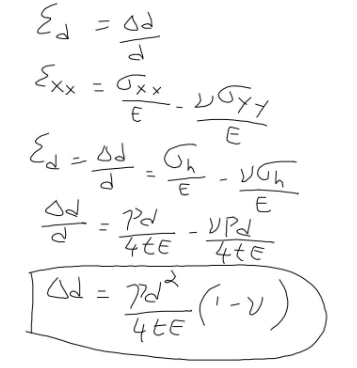 ε_d = Δd/d
ε_xx = σ_xx/E - νσ_yy/E
ε_d = Δd/d = σ_h/E - νσ_h/E
Δd/d = Pd/4tE - νPd/4tE
Δd = Pd²/4tE (1-ν)